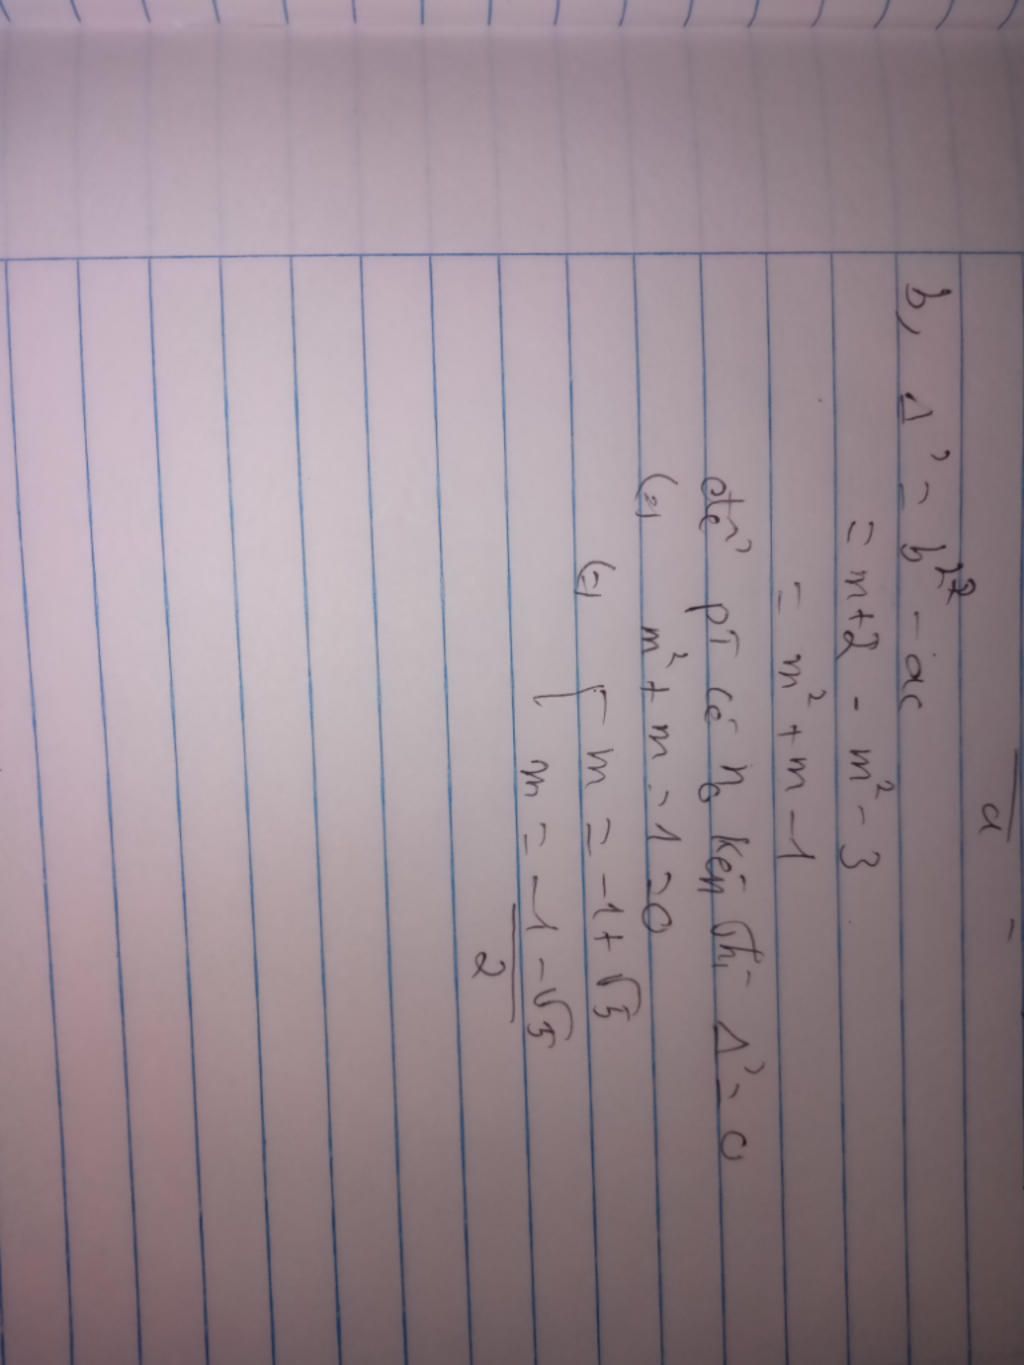 a
b, Δ' = b'² - ac
= m+2 - m² - 3
= m² + m - 1
để pT có n₀ kép thì Δ' = 0
(=) m² + m - 1 = 0
(=) [ m = -1 + √5
m = -1 - √5
2